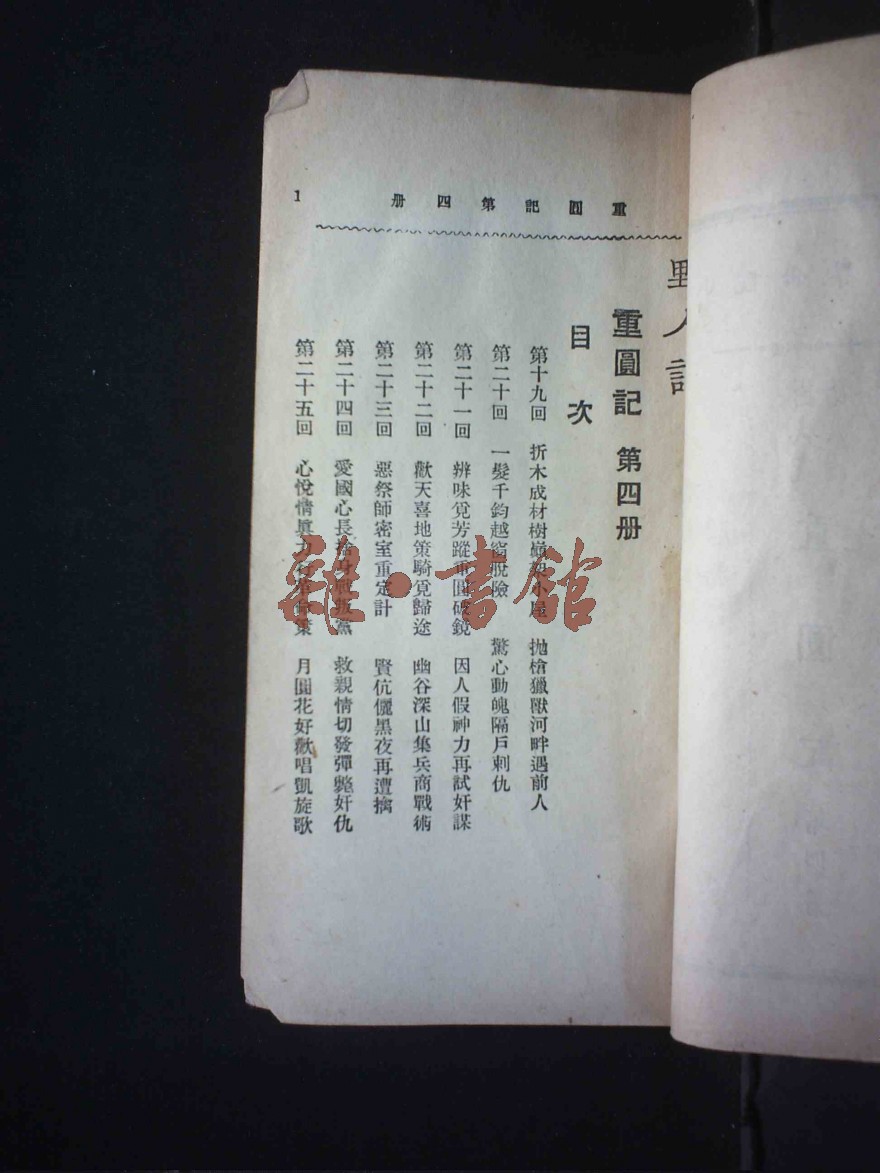 重圓記第四册
1
野人記
重圓記 第四册
目次
第十九回 折木成材樹巔架小屋 拋槍獵獸河畔遇前人
第二十回 一髮千鈞越窗脫險 驚心動魄隔戶刺仇
第二十一回 辨味覓芳蹤重圓破鏡 因人假神力再試奸謀
第二十二回 歡天喜地策騎覓歸途 幽谷深山集兵商戰術
第二十三回 惡祭師密室重定計 賢伉儷黑夜再遭擒
第二十四回 愛國心長捨身戰叛黨 救親情切發彈斃奸仇
第二十五回 心悅情眞力 策 月圓花好歡唱凱旋歌
雜·書館